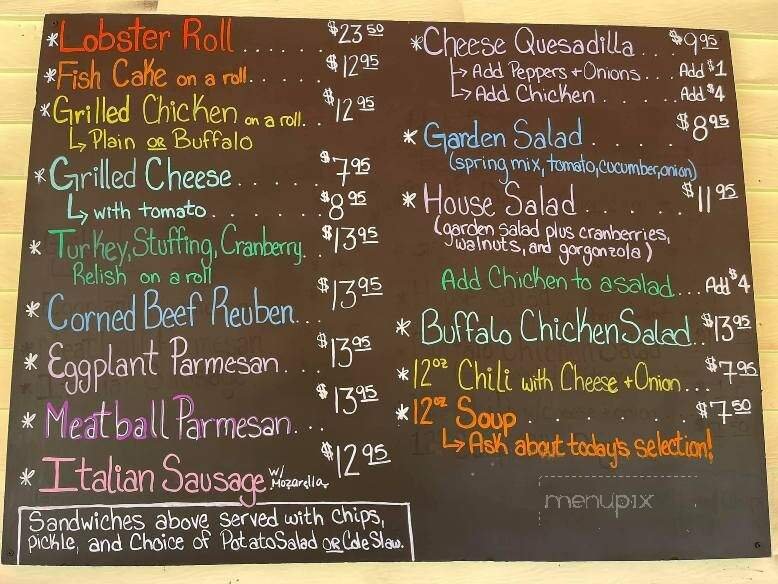 *Lobster Roll ...... $23 50
*Fish Cake on a roll. .... $12 95
*Grilled Chicken on a roll. .. $12 95
↳ Plain OR Buffalo
*Grilled Cheese ..... $7 95
↳ with tomato ....... $8 95
* Turkey, Stuffing, Cranberry. . $13 95
Relish on a roll
* Corned Beef Reuben... $13 95
* Eggplant Parmesan.... $13 95
* Meatball Parmesan... $13 95
* Italian Sausage w/ Mozarella. $12 95
Sandwiches above served with chips,
pickle, and Choice of Potato Salad OR Cole Slaw.
*Cheese Quesadilla .. $9 95
↳ Add Peppers + Onions ... Add $1
↳ Add Chicken ..... Add $4
* Garden Salad ..... $8 95
(spring mix, tomato, cucumber, onion)
* House Salad ...... $11 95
(garden salad plus cranberries,
walnuts, and gorgonzola)
Add Chicken to a salad... Add $4
* Buffalo Chicken Salad.. $13 95
*12oz Chili with Cheese + Onion... $7 95
*12oz Soup ....... $7 50
↳ Ask about today's selection!
menupix